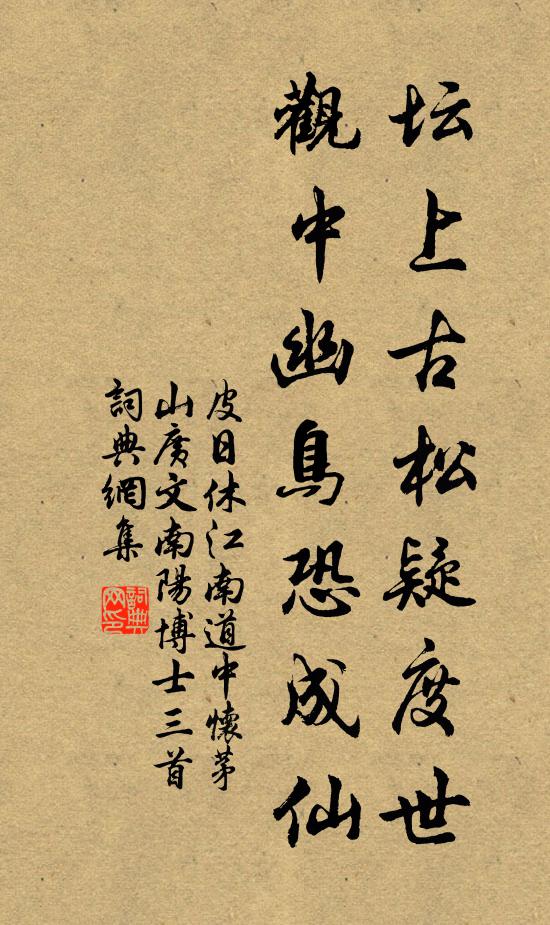 坛上古松疑度世
觀中幽鳥恐成仙
皮日休江南道中懷茅
山廣文南陽博士三首
詞典網集
詞典網印